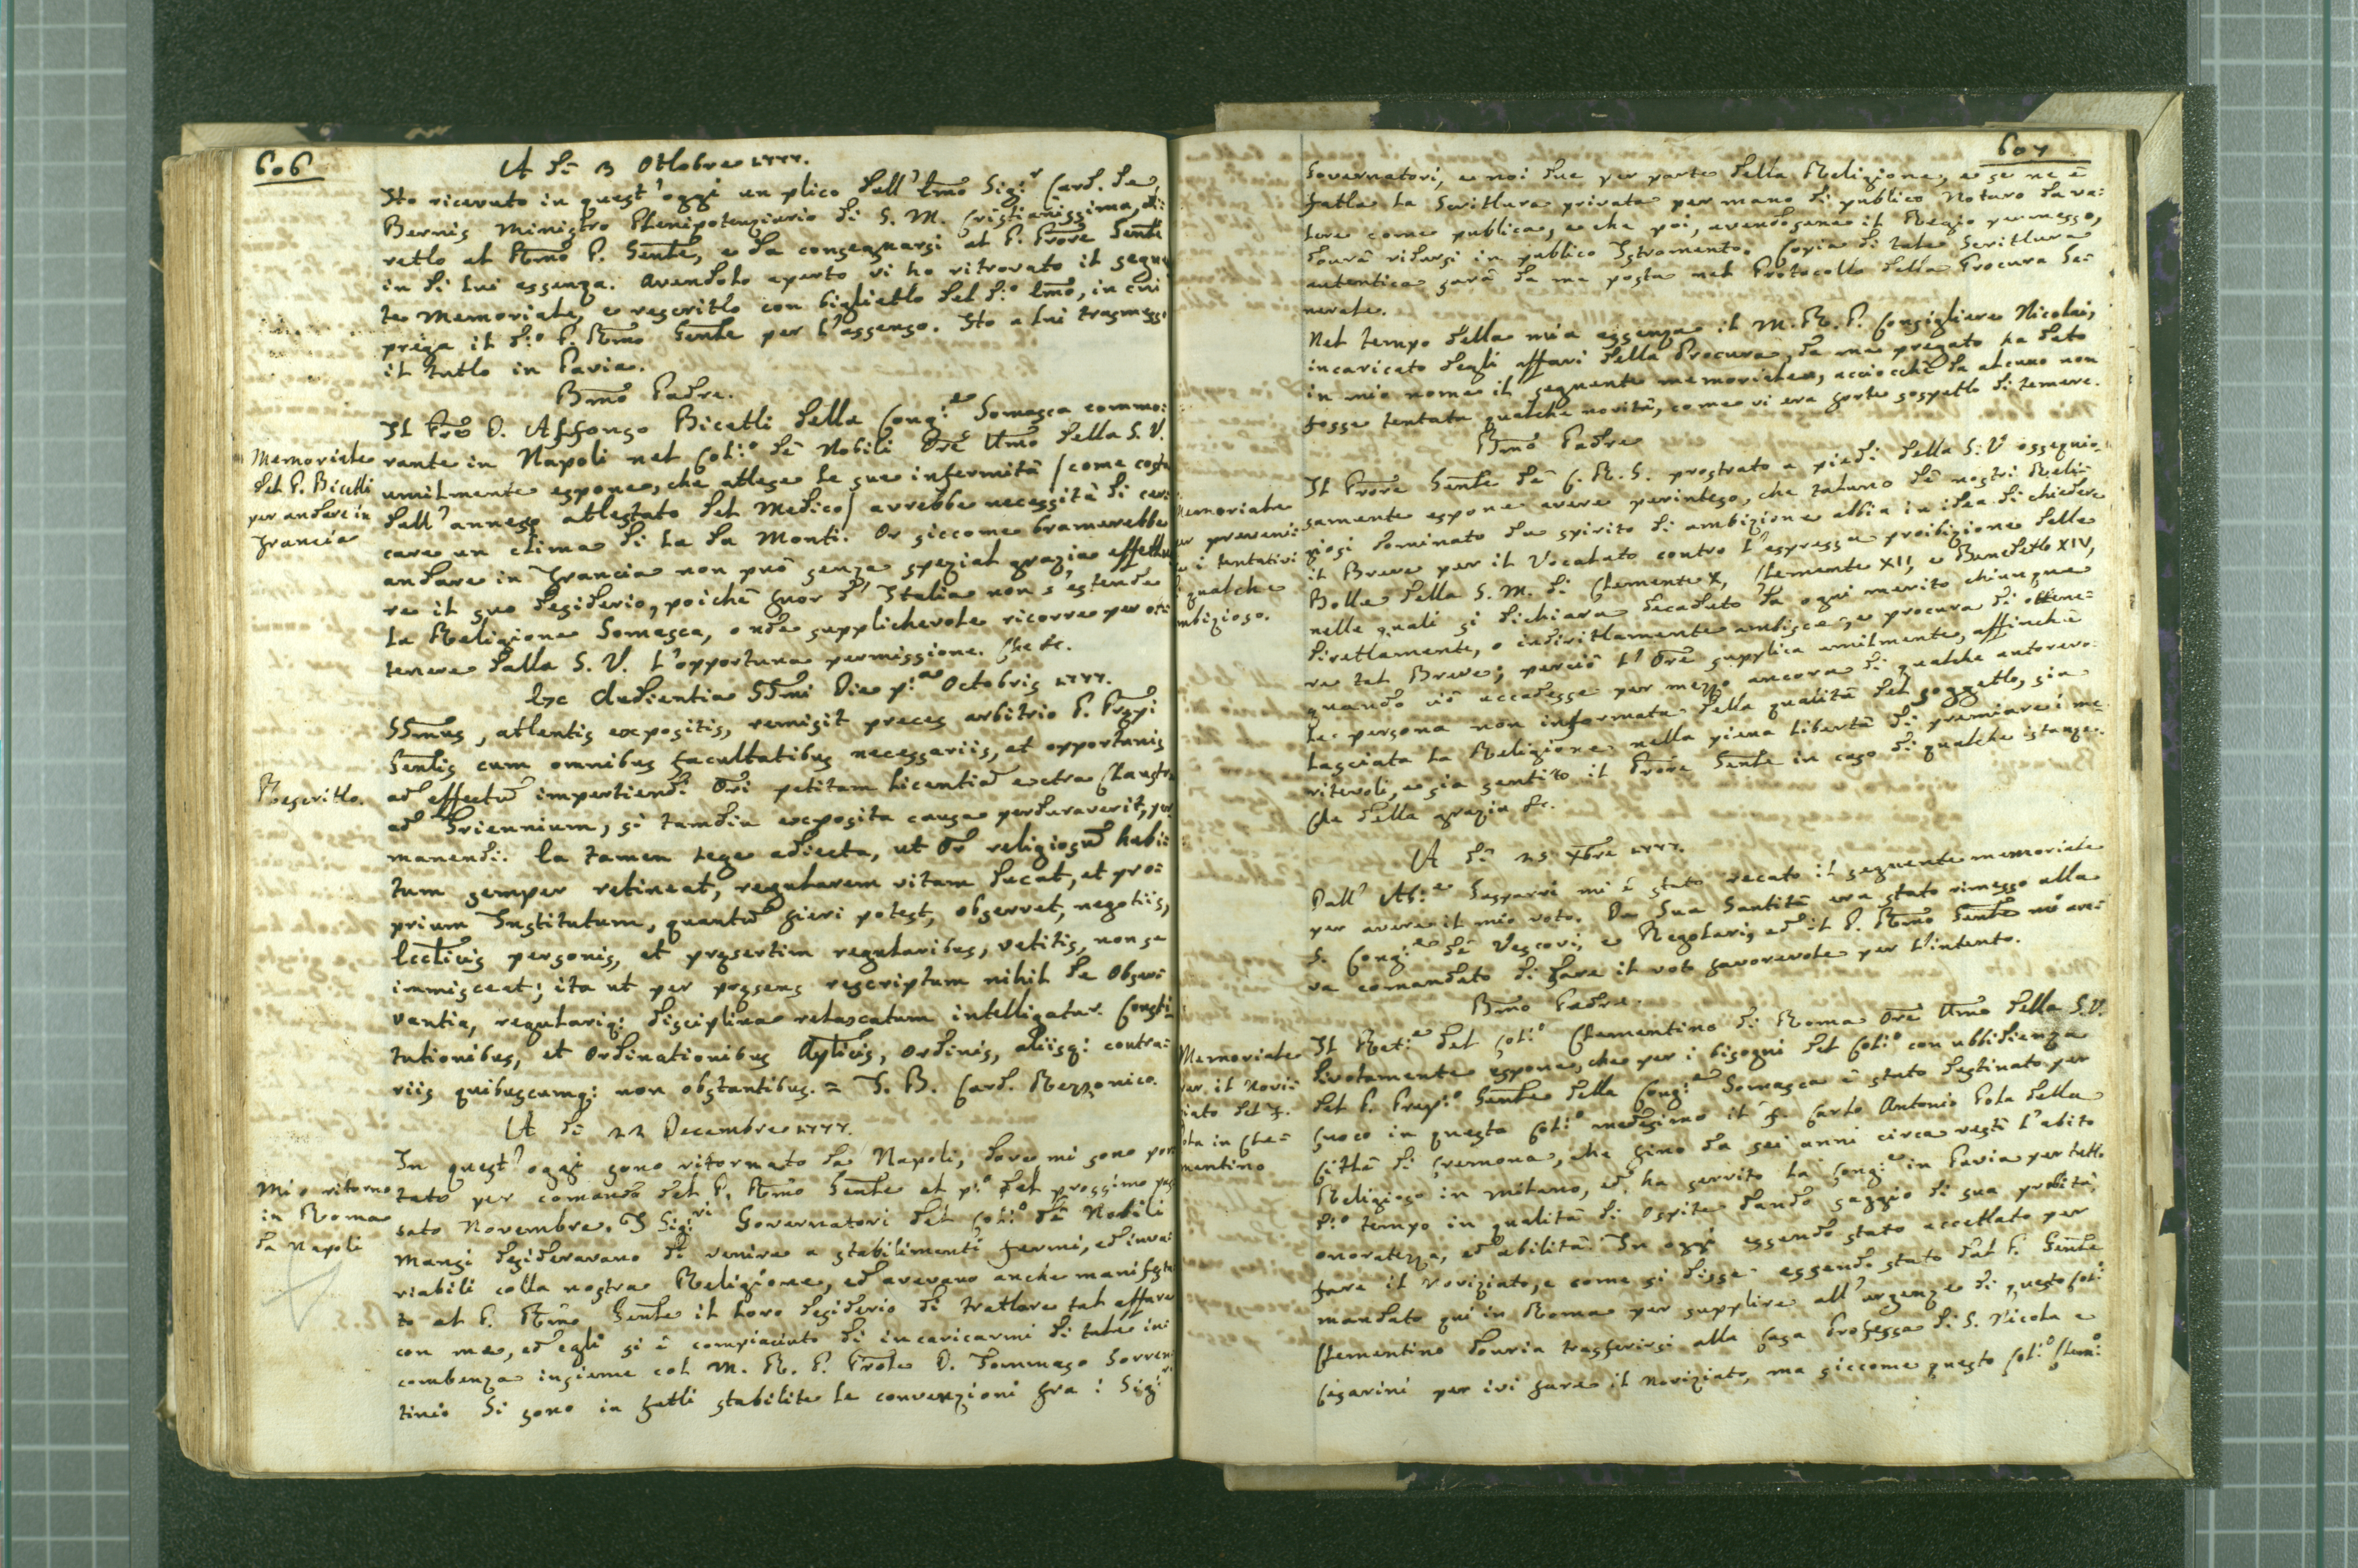 606
A dì 13 Ottobre 1777.
Ho ricevuto in quest'oggi un plico dall'Emo Sig:r Card. de
Bernis Ministro Plenipotenziario di S. M. Cristianissima, di:
retto al Rmo P. Gente, e da consegnarsi al P. Prore Gente
in di lui assenza. Avendolo aperto vi ho ritrovato il seguen
te Memoriale, e rescritto con biglietto del d:o Emo, in cui
prega il d:o P. Rmo Gente per l'assenso. Ho a lui trasmesso
il tutto in Pavia.
Bmo Padre.
Il Pre D. Alfonso Bicetti della Cong:e Somasca commo:
rante in Napoli nel Coll:o dè Nobili Ore Umo della S. V.
umilmente espone, che attese le sue infermità (come costa
dall'annesso attestato del Medico) avrebbe necessità di cer
care un clima di là da Monti. Or siccome bramerebbe
andare in Francia non può senza spezial grazia effettua
re il suo desiderio, poichè fuor d'Italia non s'estende
la Religione Somasca, onde supplichevole ricorre per ot:
tenere dalla S. V. l'opportuna permissione. Che &c.
Memoriale
del P. Bicetti
per andare in
Francia
Ex Audientia SSmi Die p:a Octobris 1777.
SSmus, attentis expositis, remisit preces arbitrio P. Prpi
Gentis cum omnibus facultatibus necessariis, et opportunis
ad effectum impertiendi Ori petitam licentiam extra Claustra
ad Triennium, si tamdiu exposita causa perduraverit, per
manendi. Ea tamen lege adiecta, ut Or religiosum habi:
tum semper retineat, regularem vitam ducat, et pro:
prium Institutum, quantum fieri potest, observet, negotiis,
Ecclicis personis, et prsertim regularibus, vetitis, non se
immisceat; ita ut per prsens rescriptum nihil de obser:
vantia, regulariq: disciplina relaxatum intelligatur. Consti:
tutionibus, et Ordinationibus Aplicis, Ordinis, aliisq: contra:
riis quibuscumq: non obstantibus. = I. B. Card. Rezzonico.
Rescritto.
A dì 22 Decembre 1777.
In quest'oggi sono ritornato da Napoli, dove mi sono por
tato per comando del P. Rmo Gente al p:o del prossimo pas
sato Novembre. I Sig:ri Governatori del Coll:o dè Nobili
Mansi desideravano di venire a stabilimenti fermi, ed inva:
riabili colla nostra Religione, ed avevano anche manifesta
to al P. Rmo Gente il loro desiderio di trattare tal affare
con me, ed egli si è compiaciuto di incaricarmi di tale in:
combenza insieme col M. R. P. Prole D. Tommaso Sorren
tino. Si sono in fatti stabilite le convenzioni fra i Sig:ri
Mio ritorno
in Roma
da Napoli
607
Governatori, e noi due per parte della Religione, e se ne è
fatta la Scrittura privata per mano di publico Notaro da va:
lere come publica, e che poi, avendosene il Regio permesso,
dourà ridursi in publico Istromento. Copia di tale Scrittura
autentica sarà da me posta nel Protocollo della Procura Ge:
nerale.
Nel tempo della mia assenza il M. R. P. Consigliere Nicolai,
incaricato degli affari della Procura, da me pregato ha dato
in mio nome il seguente memoriale, acciocchè da alcuno non
fosse tentata qualche novità, come vi era forte sospetto di temere.
Bmo Padre
Il Prore Gente dè C. R. S. prostrato a piedi della S. V. ossequio:
samente espone avere perinteso, che taluno dè nostri Reli:
giosi dominato da spirito di ambizione abbia in idea di chiedere
il Breve per il Vocalato contro l'espressa proibizione delle
Bolle della S. M. di Clemente X, Clemente XII, e Benedetto XIV,
nelle quali si dichiara decaduto da ogni merito chiunque
direttamente, o indirittamente ambisce, e procura di ottene:
re tal Breve; perciò l'Ore supplica umilmente, affinchè
quando ciò accadesse per mezzo ancora di qualche autorevo:
le persona non informata della qualità del soggetto, sia
lasciata la Religione nella piena libertà di premiare i me:
ritevoli, e sia sentito il Prore Gente in caso di qualche istanza.
Che della grazia &c.
Memoriale
per prevenir
e i tentativi
i qualche
mbizioso.
A dì 25 Xbre 1777.
Dall'Ab:e Gasparri mi è stato recato il seguente memoriale
per avere il mio voto. Da Sua Santità era stato rimesso alla
S. Cong:e dè Vescovi, e Regolari, ed il P. Rmo Gente mi ave:
va comandato di fare il voto favorevole per l'intento.
Bmo Padre.
Il Ret:e del Coll:o Clementino di Roma Ore Umo della S. V.
divotamente espone, che per i bisogni del Coll:o con ubbidienza
del P. Prep:o Gente della Cong:e Somasca è stato destinato per
cuoco in questo Coll:o medesimo il F. Carlo Antonio Pola della
Città di Cremona, che sino da sei anni circa vestì l'abito
Religioso in Milano, ed ha servito la Cong:e in Pavia per tutto
d:o tempo in qualità di Ospite dando saggio di sua probità,
onoratezza, ed abilità. In oggi essendo stato accettato per
fare il Noviziato, e come si disse essendo stato dal P. Gente
mandato quì in Roma per supplire all'urgenze di questo Coll:o
Clementino douria trasferirsi alla Casa Professa di S. Nicola e
Cesarini per ivi fare il Noviziato, ma siccome questo Coll:o Clem:o
Memoriale
per il Novi:
ziato del F.
ola in Cle:
mentino